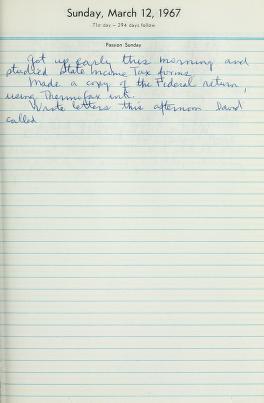 Sunday, March 12, 1967
71st day – 294 days follow
Passion Sunday
Got up early this morning and
studied State Income Tax forms
Made a copy of the Federal return,
using Thermofax ink.
Wrote letters this afternoon David
called